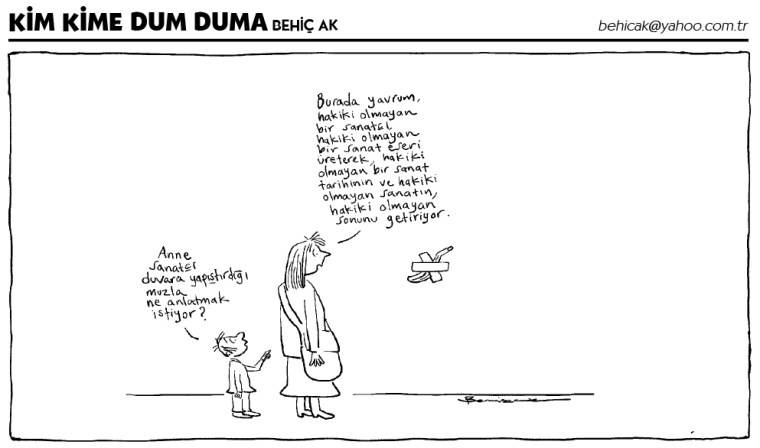 KİM KİME DUM DUMA BEHİÇ AK
behicak@yahoo.com.tr
Burada yavrum,
hakiki olmayan
bir sanatçı
hakiki olmayan
bir sanat eseri
üreterek, hakiki
olmayan bir sanat
tarihinin ve hakiki
olmayan sanatın,
hakiki olmayan
sonunu getiriyor.
Anne
sanatçı
duvara yapıştırdığı
muzla
ne anlatmak
istiyor?